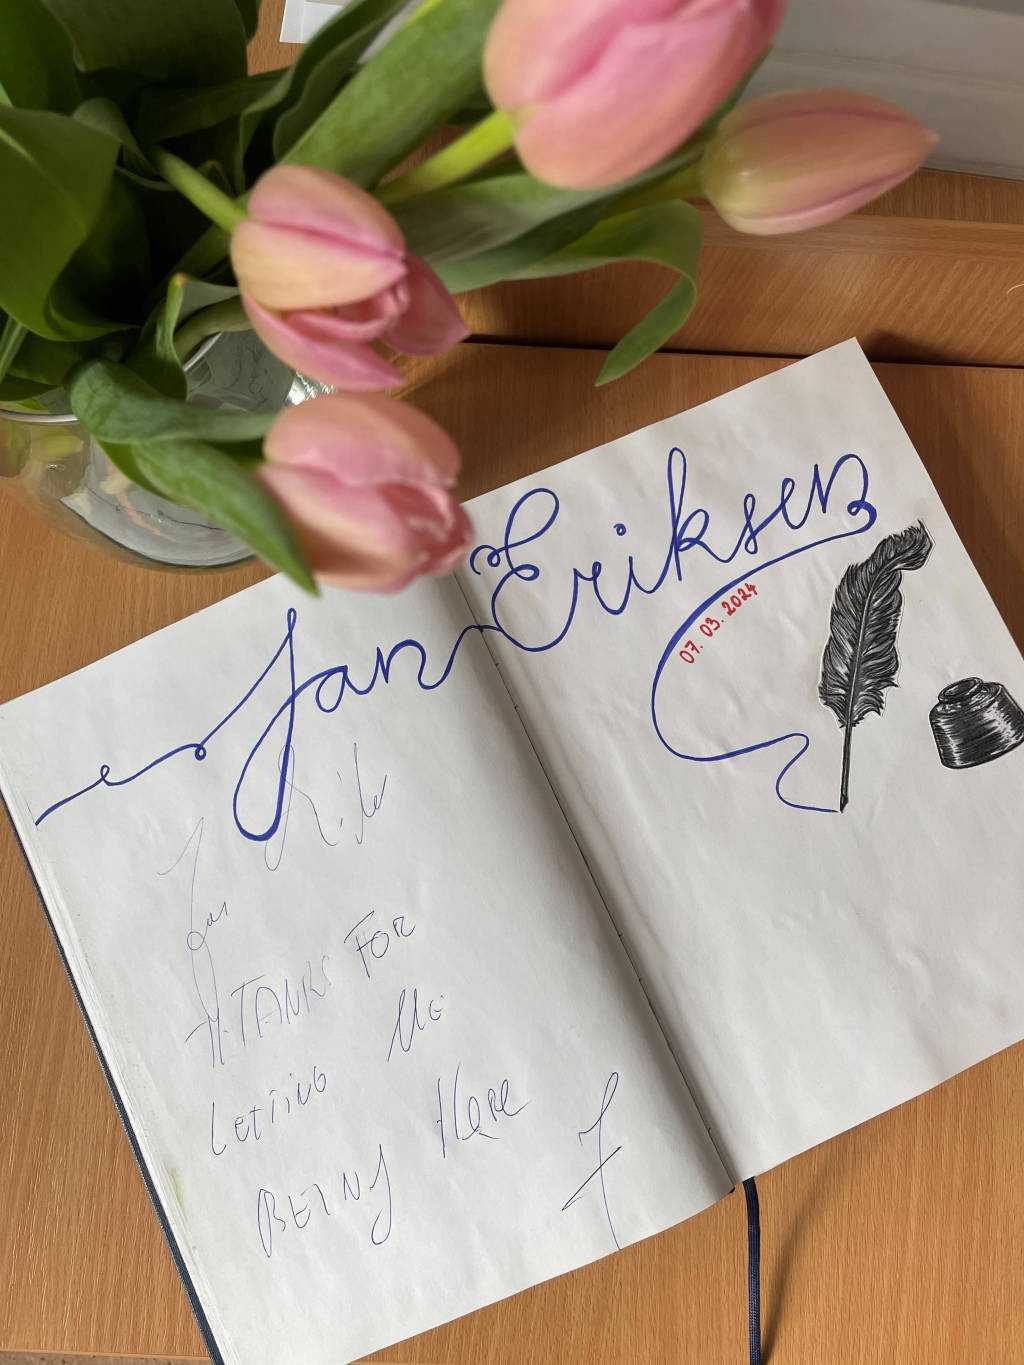 Jan Eriksen
07. 03. 2024
THANKS FOR
LETTING ME
BEING HERE